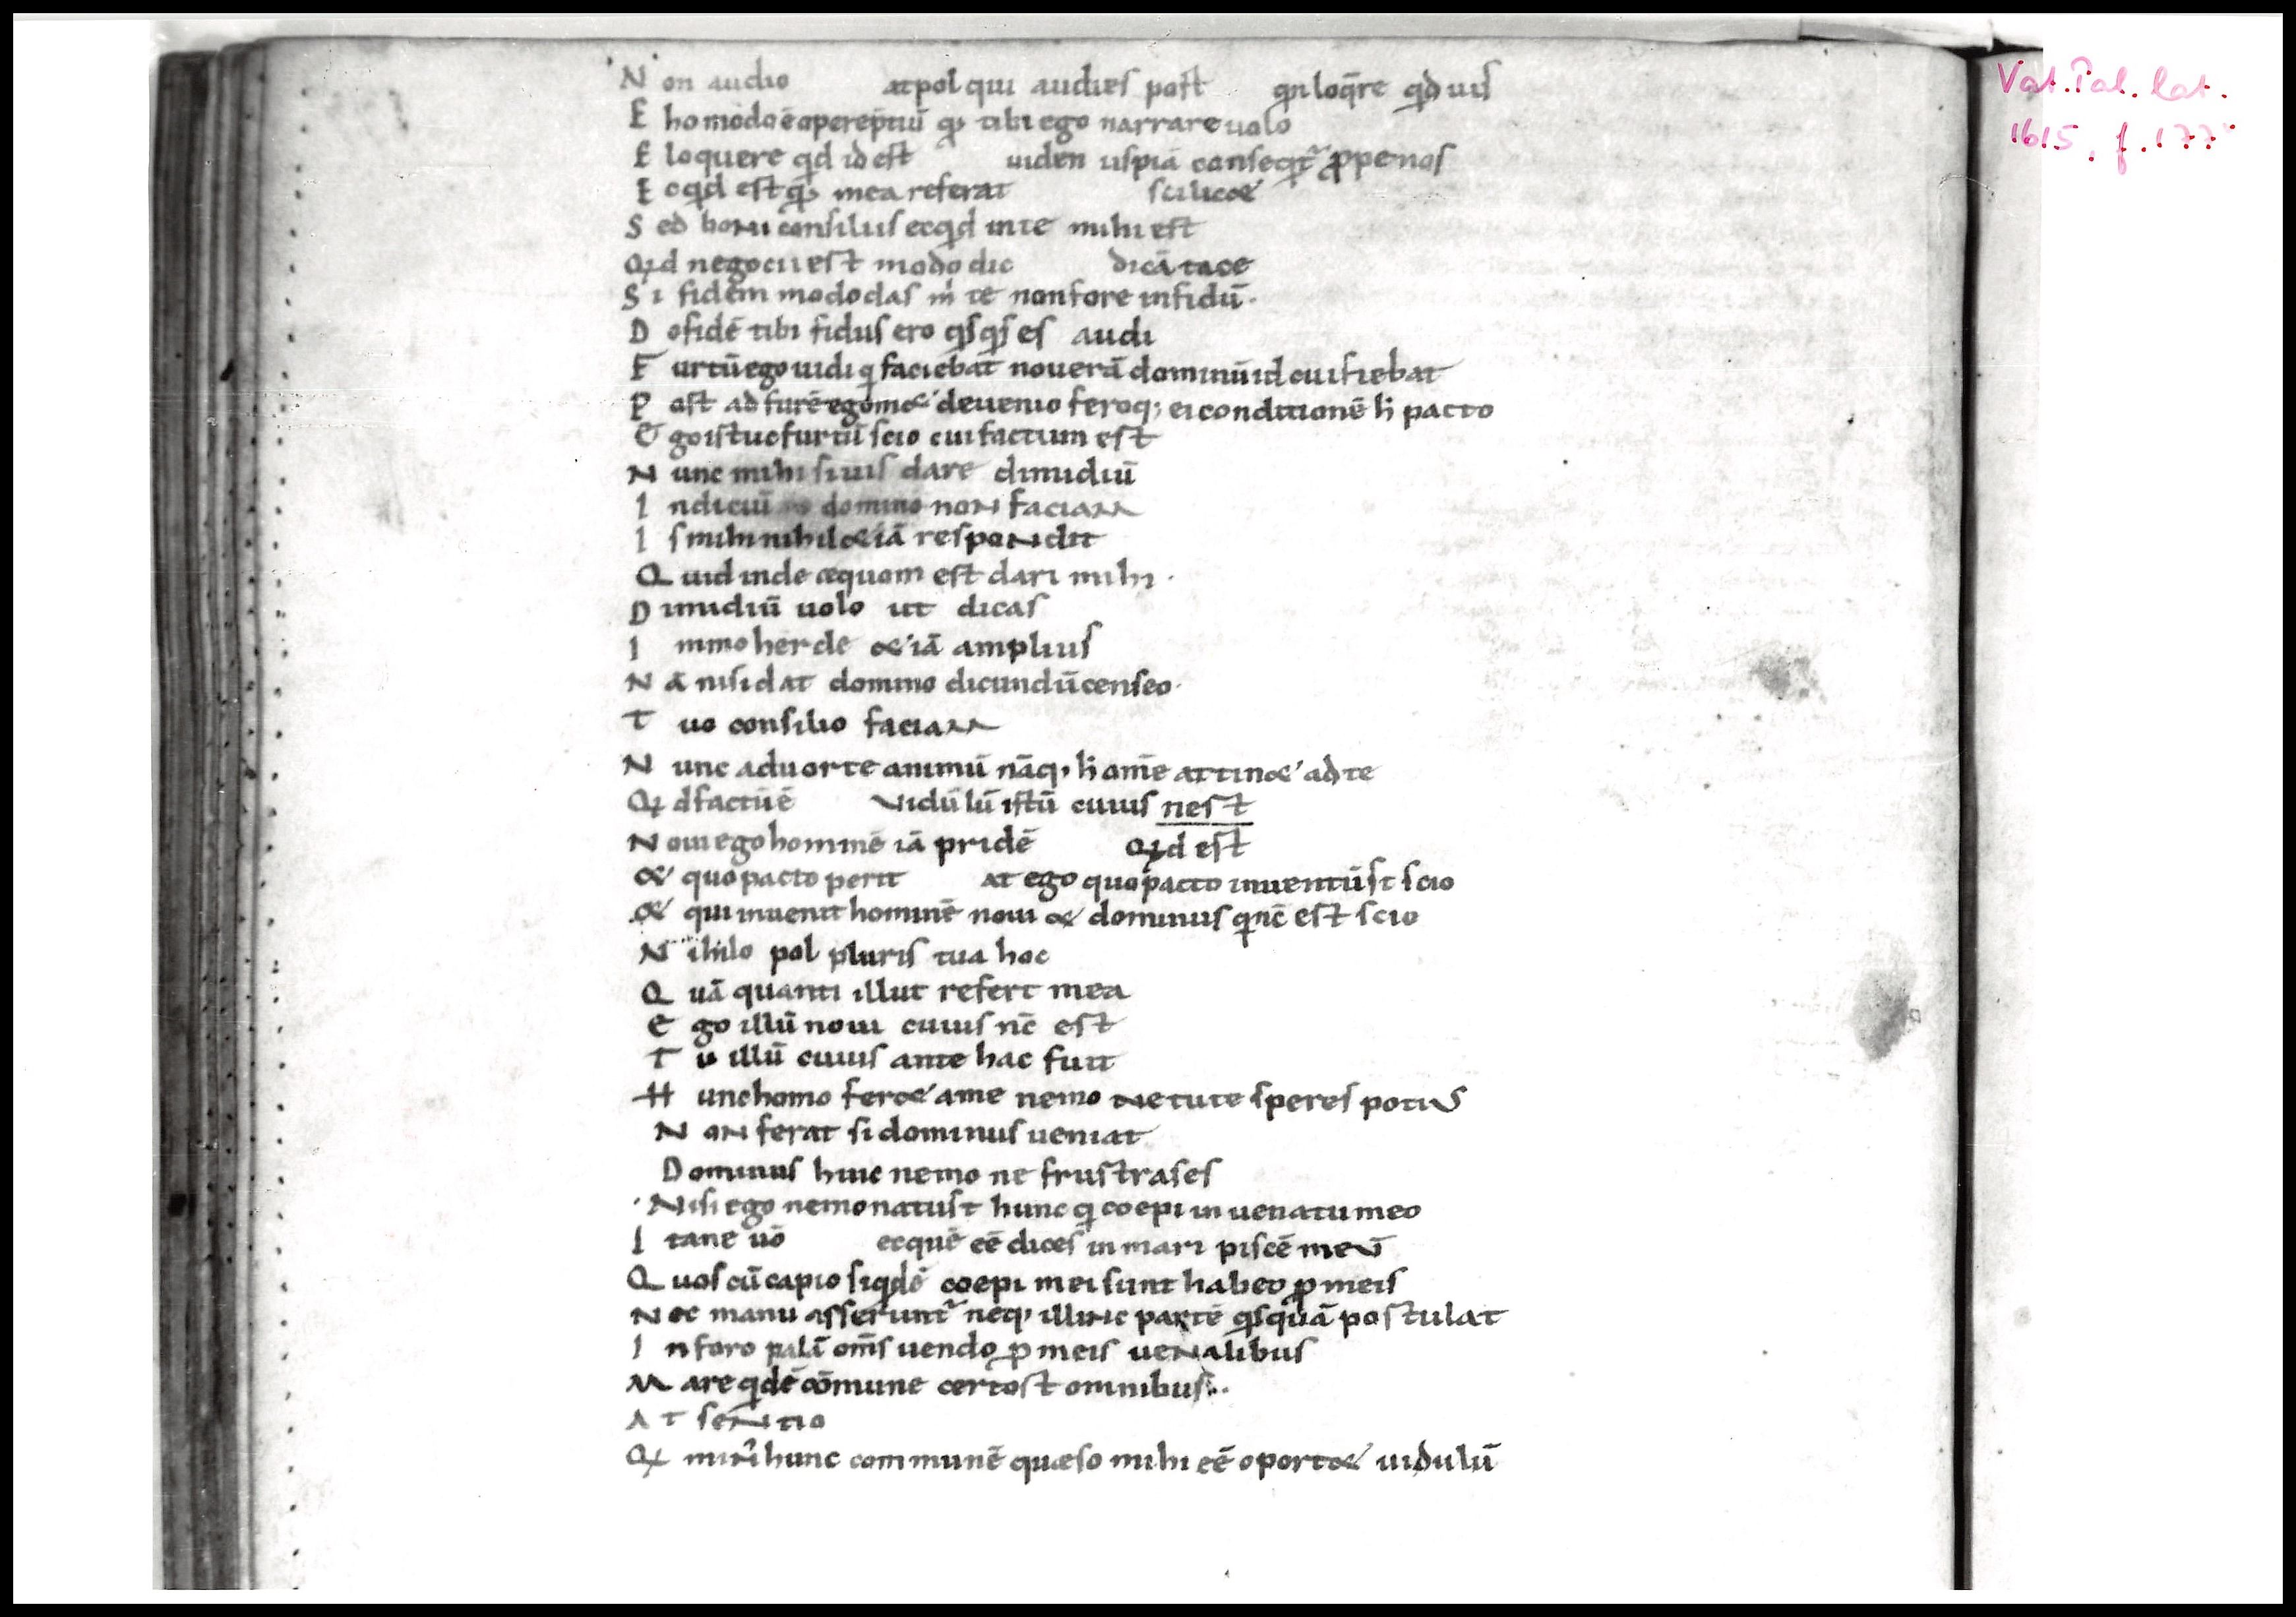 N on audio atpol qui audies post qn loq̄re qđ uis
E ho modo ē operep̄tiū qđ tibi ego narrare uolo
E loquere qd id est uiden uspiā conseqt̄ ꝓpe nos
E cqd est qđ mea referat scilic&
S ed boni consilii s ecqd in te mihi est
Qd negocii est modo dic dicā tace
S i fidem modo das ṁ te non fore infidū·
D o fidē tibi fidus ero qsqs es audi
F urtū ego uidi q faciebat nouerā dominū id cui fiebat
P ost ad furē egom& deuenio feroq; ei conditionē h pacto
E go istuc furtū scio cui factum est
N unc mihi si uis dare dimidiū
I ndiciū domino non faciam
I s mihi nihil &iā respondit
Q uid inde æquom est dari mihi ·
D imidiū uolo ut dicas
I mmo hercle &iā amplius
N ā nisi dat domino dicundū censeo·
T uo consilio faciam
N unc aduorte animū nāq; h om̄e attin& ad te
Qd factū ē Vidulū istū cuius nest
N oui ego hominē iā pridē Qd est
& quo pacto perit at ego quo pacto inuentūst scio
& qui inuenit hominē noui & dominus q nc̄ est scio
N ihilo pol pluris tua hoc
Q uā quanti illut refert mea
E go illū noui cuius nc̄ est
T u illū cuius ante hac fuit
H unc homo fer& a me nemo ne tute speres potius
N on ferat si dominus ueniat
Dominus huic nemo ne frustra ses
· Nisi ego nemo natust hunc q coepi in uenatu meo
I tane uō ecquē eē dices in mari piscē meū
Q uos cū capio siqdē coepi mei sunt habeo ꝓ meis
N ec manu asserunt̄ neq; illinc partē qsquā postulat
I n foro palā om̄s uendo ꝓ meis uenalibus
M are qdē cōmune certost omnibus..
A t sentio
Q mini hunc communē quæso mihi eē oport& uidulū
Vat. Pal. lat.
1615, f. 177ᵛ